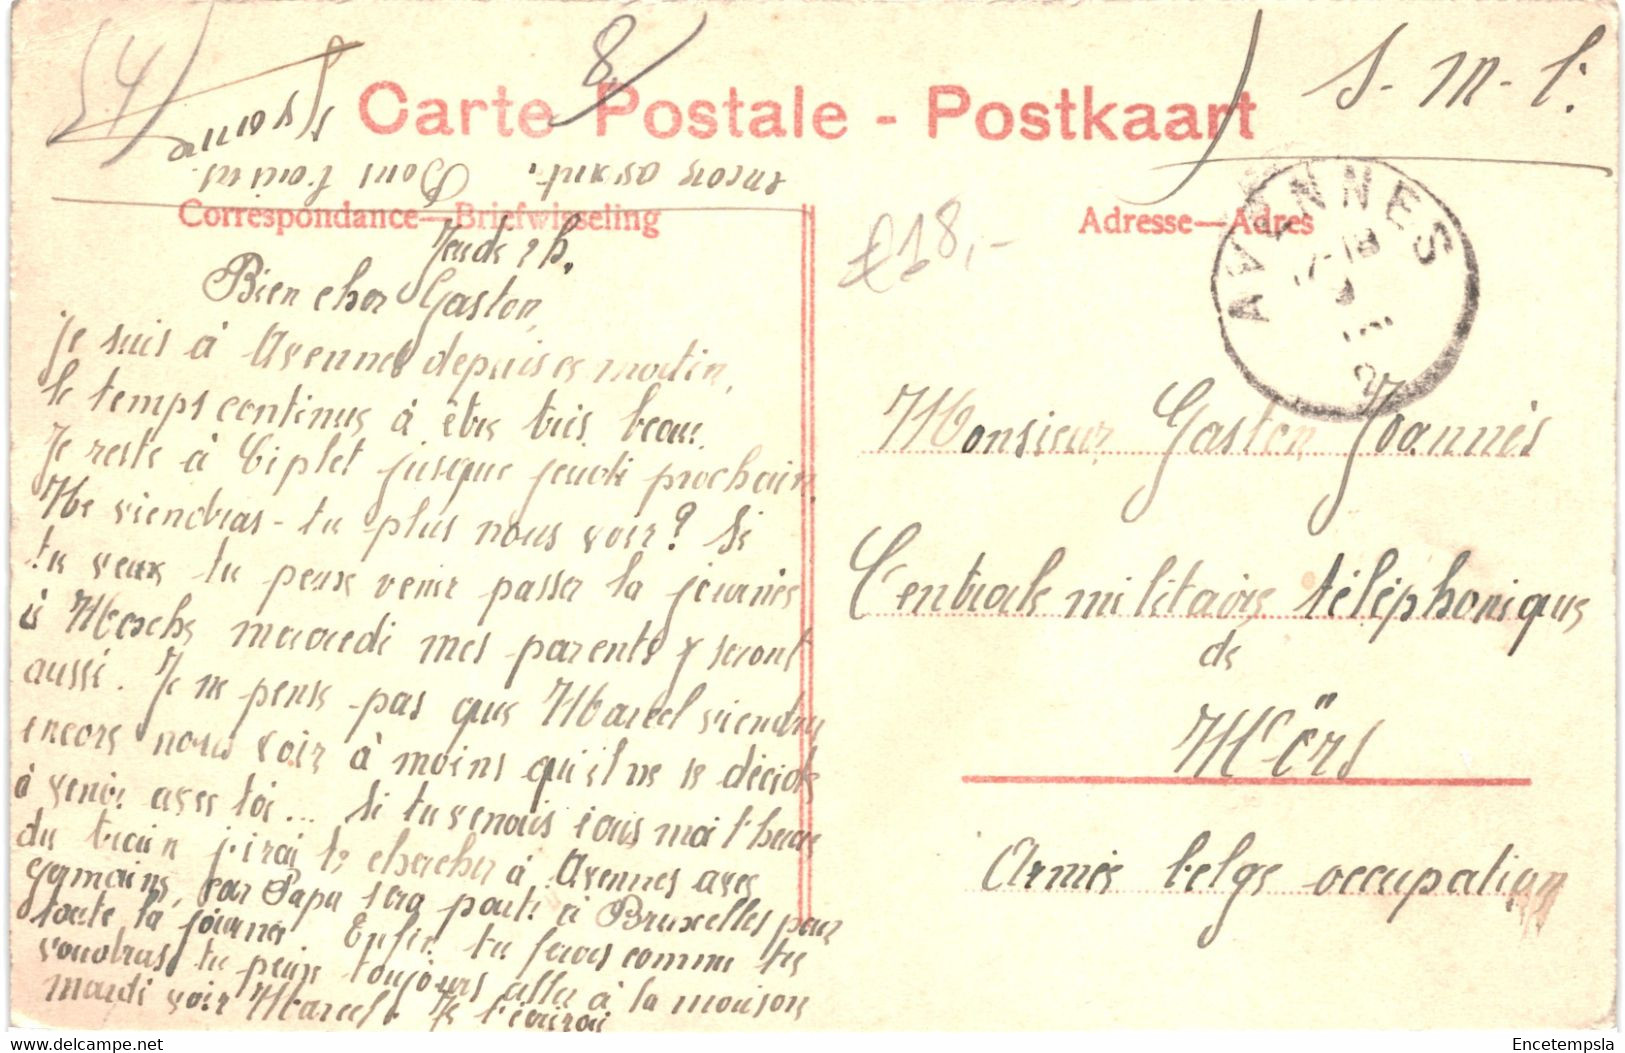 (4)
8
S. M. - l.
Carte Postale - Postkaart
Correspondance—Briefwisseling
Adresse—Adres
AVENNES
£18,-
Jeudi 2 h.
Bien cher Gaston,
Je suis à Avennes depuis ce matin,
le temps continue à être très beau.
Je reste à Ciplet jusque jeudi prochain.
Ne viendras-tu plus nous voir? Si
tu veux tu peux venir passer la journée
à Hosche mercredi mes parents y seront
aussi. Je ne pense pas que Marcel viendra
encore nous voir à moins qu'il ne se décide
à venir avec toi... Si tu venais écris moi l'heure
du train j'irai te chercher à Avennes avec
Germaine, car Papa sera parti à Bruxelles pour
toute la journée. Enfin tu feras comme tu
voudras tu peux toujours aller à la maison
mardi voir Marcel. Je t'écrirai
encore Bons
Yvonne
Monsieur Gaston Joannès
Centrale militaire téléphonique
de
Mörs
Armée belge occupation
Encetempsla